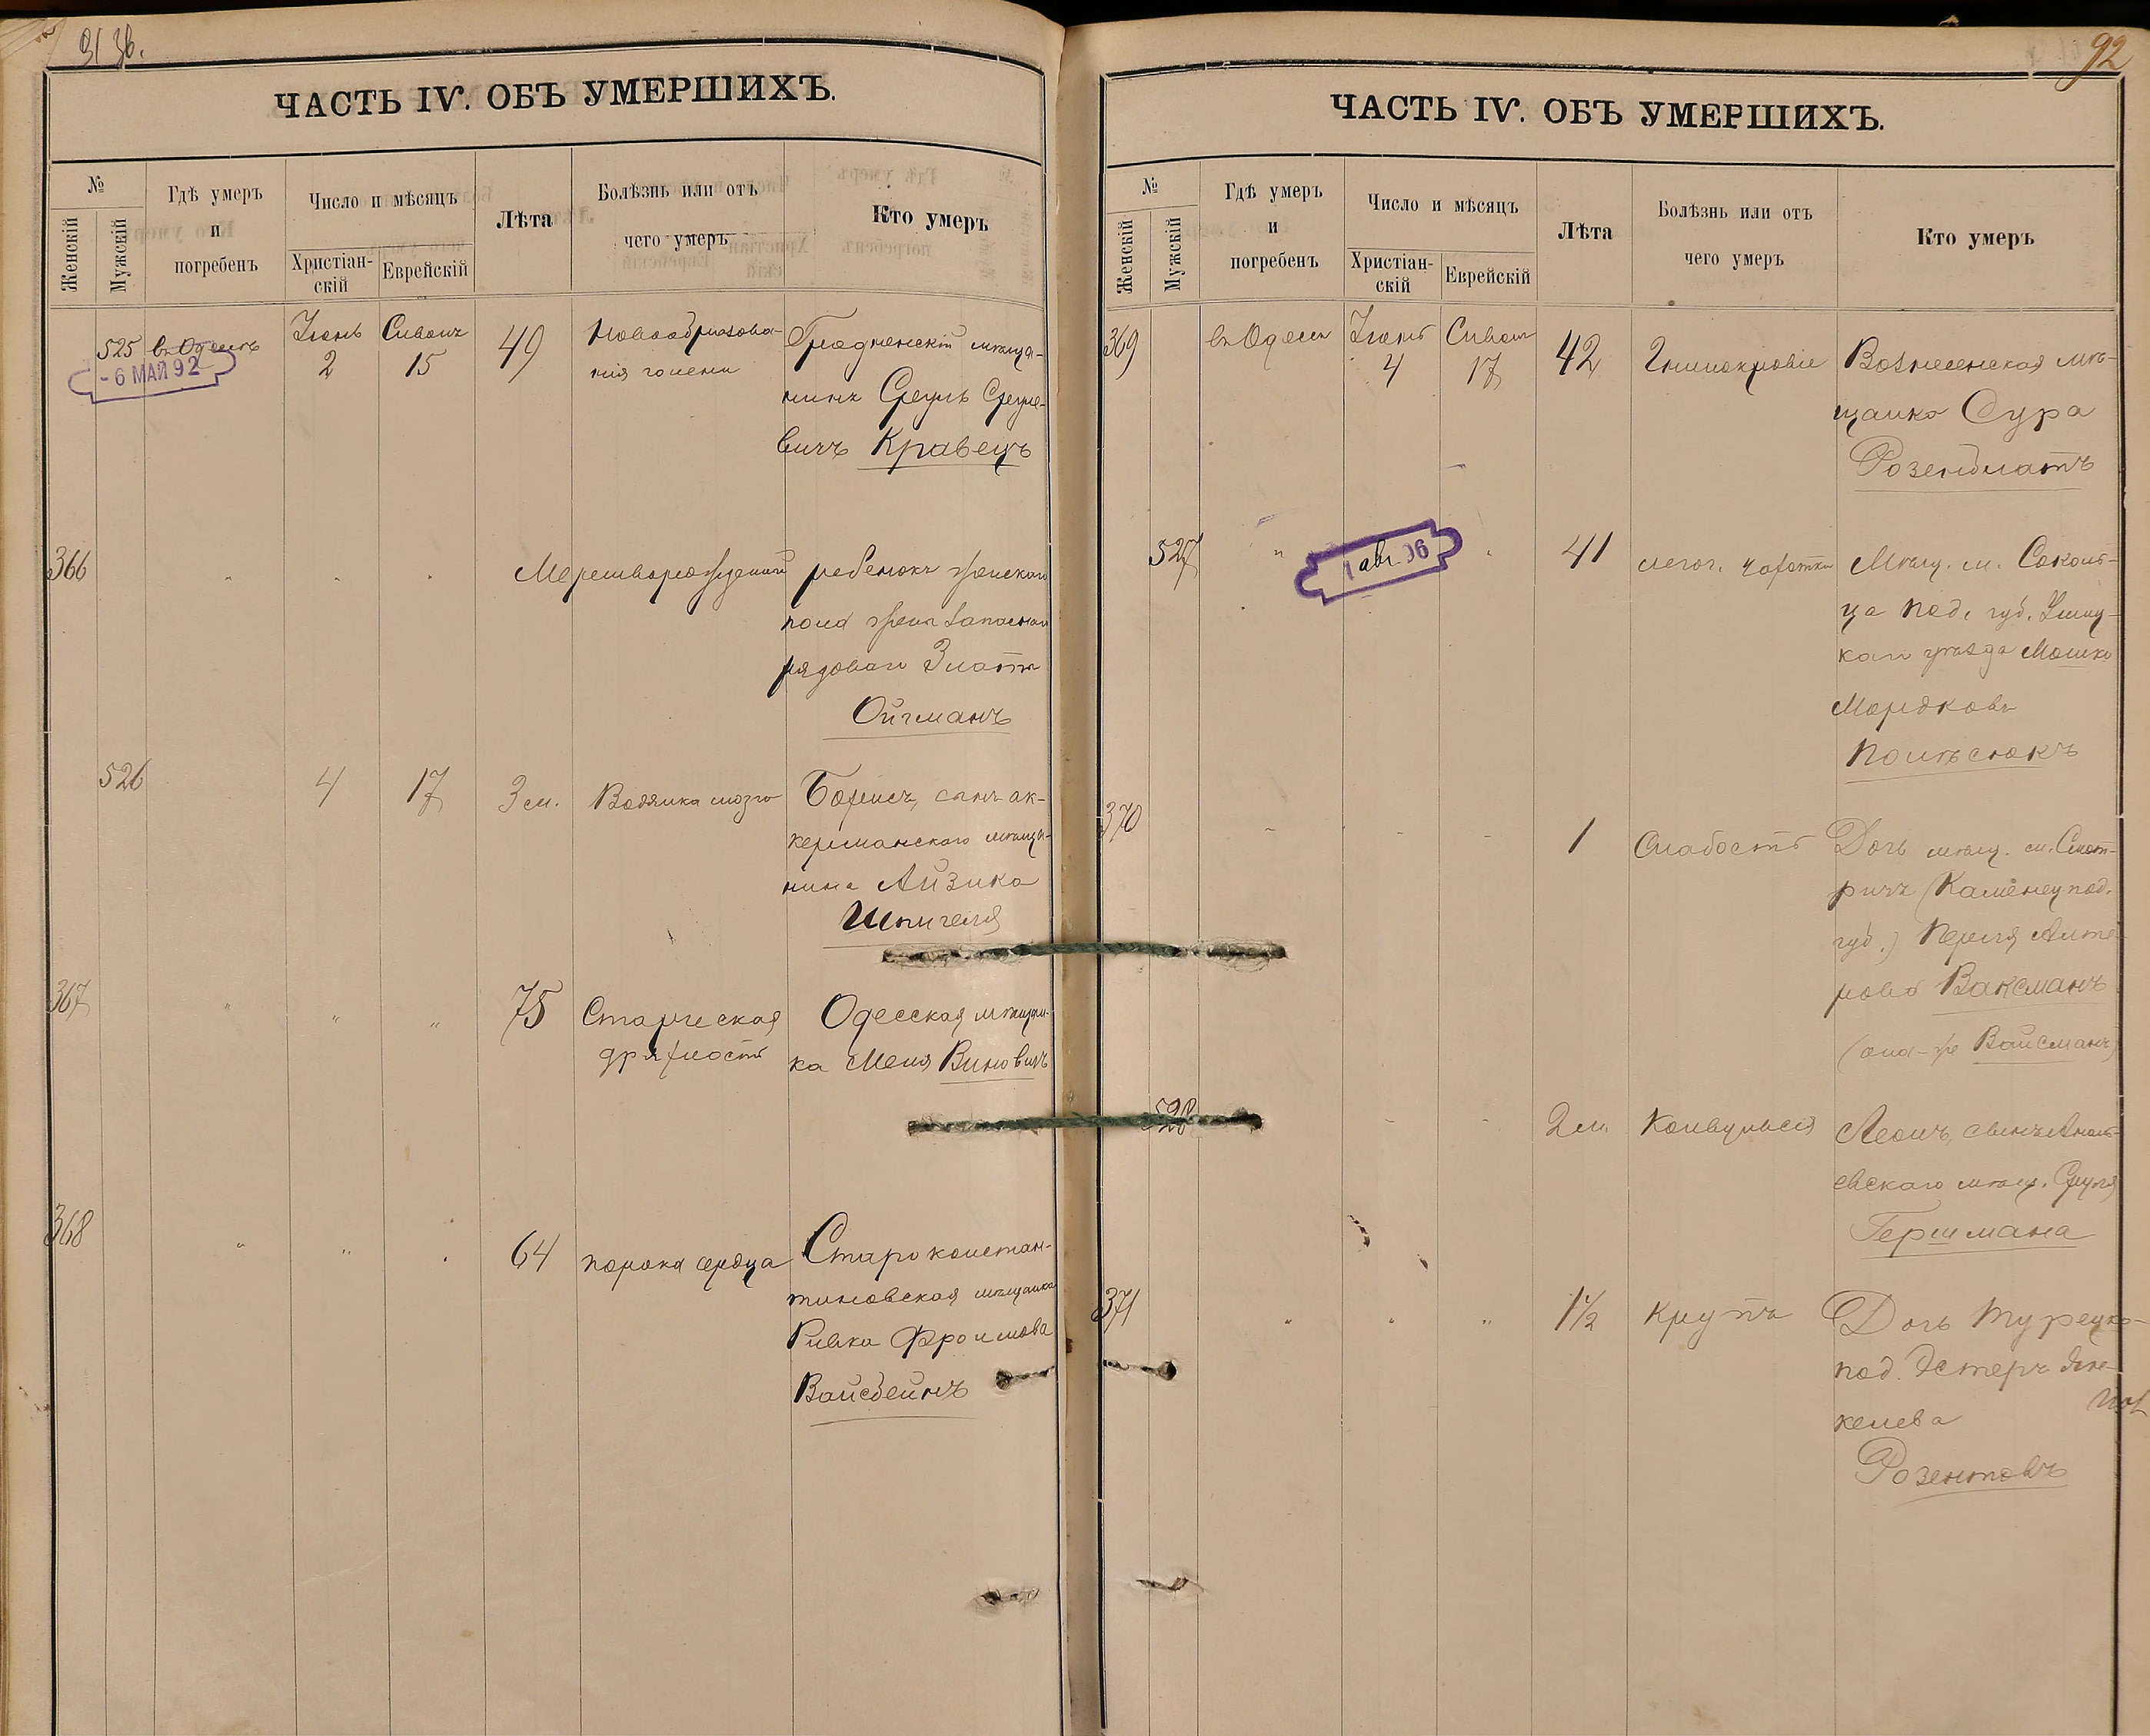 ЧАСТЬ IV. ОБЪ УМЕРШИХЪ.
№
Женскій
Мужскій
Гдѣ умеръ
и
погребенъ
Число и мѣсяцъ
Христіан-
скій
Еврейскій
Лѣта
Болѣзнь или отъ
чего умеръ
Кто умеръ
525
въ Одессѣ
Іюнь
2
Сиванъ
15
49
Новообразова-
нія голени
Гродненскій мѣща-
нинъ Сруль Сруле-
вичъ Кравецъ
- 6 МАЙ 92
366
" " "
Мертворожденный ребенокъ женскаго
пола жены запаснаго
рядоваго Златы
Ойгманъ
526
4
17
3 м.
Водянка мозга
Борисъ, сынъ ак-
керманскаго мѣща-
нина Айзика
Шпигеля
367
" " "
75
Старческая
дряхлость
Одесская мѣщан-
ка Меня Виновичъ
368
" " "
64
порока сердца
Староконстан-
тиновская мѣщанка
Ривка Фроимова
Вайсбейнъ
92
ЧАСТЬ IV. ОБЪ УМЕРШИХЪ.
№
Женскій
Мужскій
Гдѣ умеръ
и
погребенъ
Число и мѣсяцъ
Христіан-
скій
Еврейскій
Лѣта
Болѣзнь или отъ
чего умеръ
Кто умеръ
369
въ Одессѣ
Іюнь
4
Сиван
17
42
Гнилокровіе
Вознесенская мѣ-
щанка Сура
Розенблатъ
527
" "
авг. 06
41
легоч. чахотки
Мѣщ. м. Соколь-
ца Под. губ. Ушиц-
каго уѣзда Мошко
Мордковъ
Полѣсюкъ
370
" " "
1
Слабость
Дочь мѣщ. м. Смот-
ричъ (Каменец под.
губ.) Перля Алте-
рова Ваксманъ
(она-же Вайсманъ)
528
" "
2 м.
Конвульсія
Леонъ, сынъ Анань-
евскаго мѣщ. Сруля
Гершмана
371
" " "
1½
Крупъ
Дочь Турецко-
под. Эстеръ
келева
Розентовъ